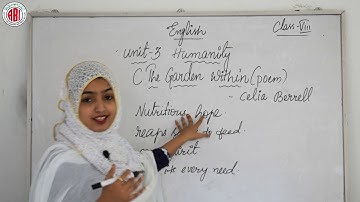 ABI
English
Class-VIII
unit-3 Humanity
C The Garden within (poem)
- Celia Berrell
Nutritious hope
reaps to feed.
every need.